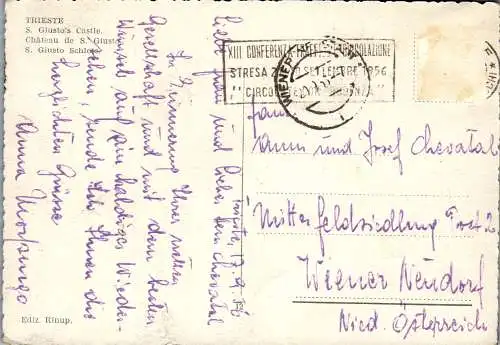 TRIESTE
S. Giusto's Castle.
Château de S. Giusto
S. Giusto Schloss
XIII CONFERENZA TRAFFICO CIRCOLAZIONE
STRESA SETTEMBRE 1956
WIENER
Triest, 17.9.56
Liebe Frau und lieber Herr Chevatal
In Erinnerung Ihrer netten
Gesellschaft und mit dem besten
Wünsch auf ein baldiges Wieder-
sehen, sende ich Ihnen die
herzlichsten Grüsse
Anna
Fam.
Anna und Josef Chevatal
Mitterfeldsiedlung
Wiener Neudorf
Nied. Österreich
Ediz. Rinup.